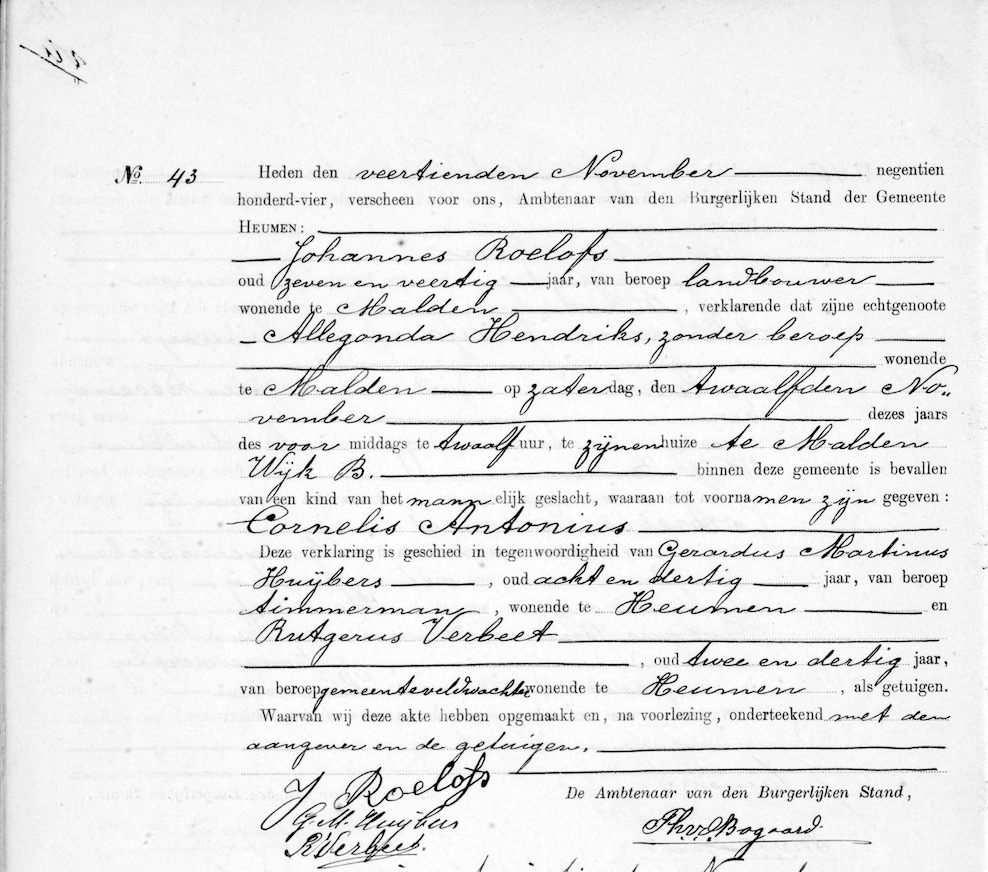 No. 43
Heden den veertienden November negentien
honderd-vier, verscheen voor ons, Ambtenaar van den Burgerlijken Stand der Gemeente
HEUMEN:
Johannes Roelofs
oud zeven en veertig jaar, van beroep landbouwer
wonende te Malden, verklarende dat zijne echtgenoote
Allegonda Hendriks, zonder beroep
wonende
te Malden op zaterdag, den twaalfden No„
vember dezes jaars
des voormiddags te twaalf uur, te zijnen huize te Malden
Wijk B. binnen deze gemeente is bevallen
van een kind van het mannelijk geslacht, waaraan tot voornamen zijn gegeven:
Cornelis Antonius
Deze verklaring is geschied in tegenwoordigheid van Gerardus Martinus
Huijbers, oud acht en dertig jaar, van beroep
timmerman, wonende te Heumen en
Rutgerus Verbeet
, oud twee en dertig jaar,
van beroep gemeenteveldwachter wonende te Heumen, als getuigen.
Waarvan wij deze akte hebben opgemaakt en, na voorlezing, onderteekend met den
aangever en de getuigen.
J Roelofs
De Ambtenaar van den Burgerlijken Stand,
G. M. Huijbers
Th. vd Bogaard.
R Verbeet.